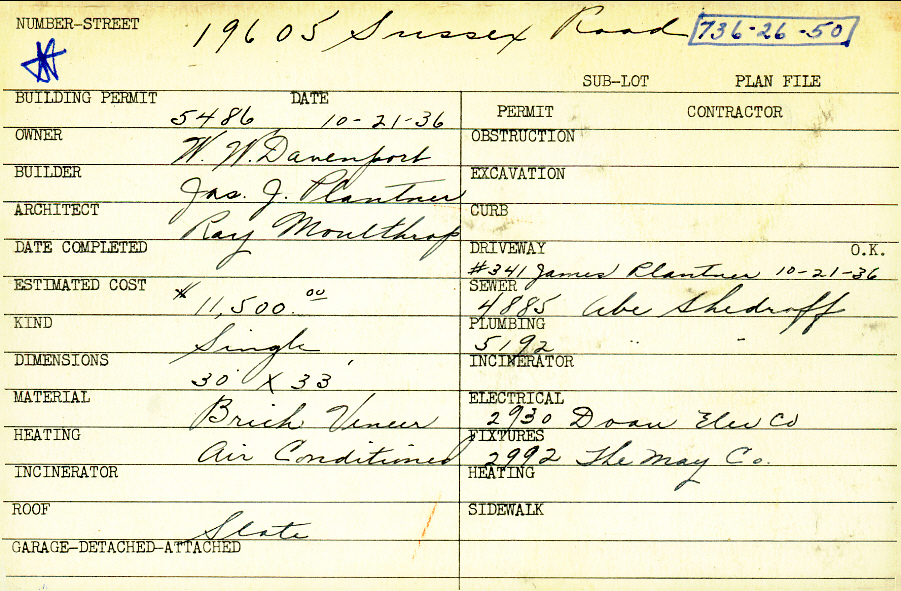 NUMBER-STREET 19605 Sussex Road 736-26-50
SUB-LOT PLAN FILE
BUILDING PERMIT 5486 DATE 10-21-36
OWNER W. W. Davenport
BUILDER Jas. J. Plantner
ARCHITECT Ray Moulthrop
DATE COMPLETED
ESTIMATED COST 11,500.00
KIND Single
DIMENSIONS 30' X 33'
MATERIAL Brick Veneer
HEATING Air Conditioned
INCINERATOR
ROOF Slate
GARAGE-DETACHED-ATTACHED
PERMIT CONTRACTOR
OBSTRUCTION
EXCAVATION
CURB
DRIVEWAY O.K.
#341 James Plantner 10-21-36
SEWER
4885 Abe Shedroff
PLUMBING
5192 " "
INCINERATOR
ELECTRICAL
2930 Doan Elec Co
FIXTURES
2992 The May Co.
HEATING
SIDEWALK